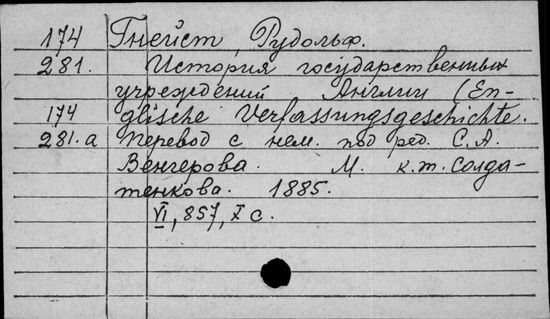 174 Гнейст, Рудольф.
281. История государственных
учреждений Англии (En-
174 glische Verfassungsgeschichte.
281.а Перевод с нем. под ред. С.А.
Венгерова. М. к.т. Солда-
тенкова. 1885.
VI, 857, X с.